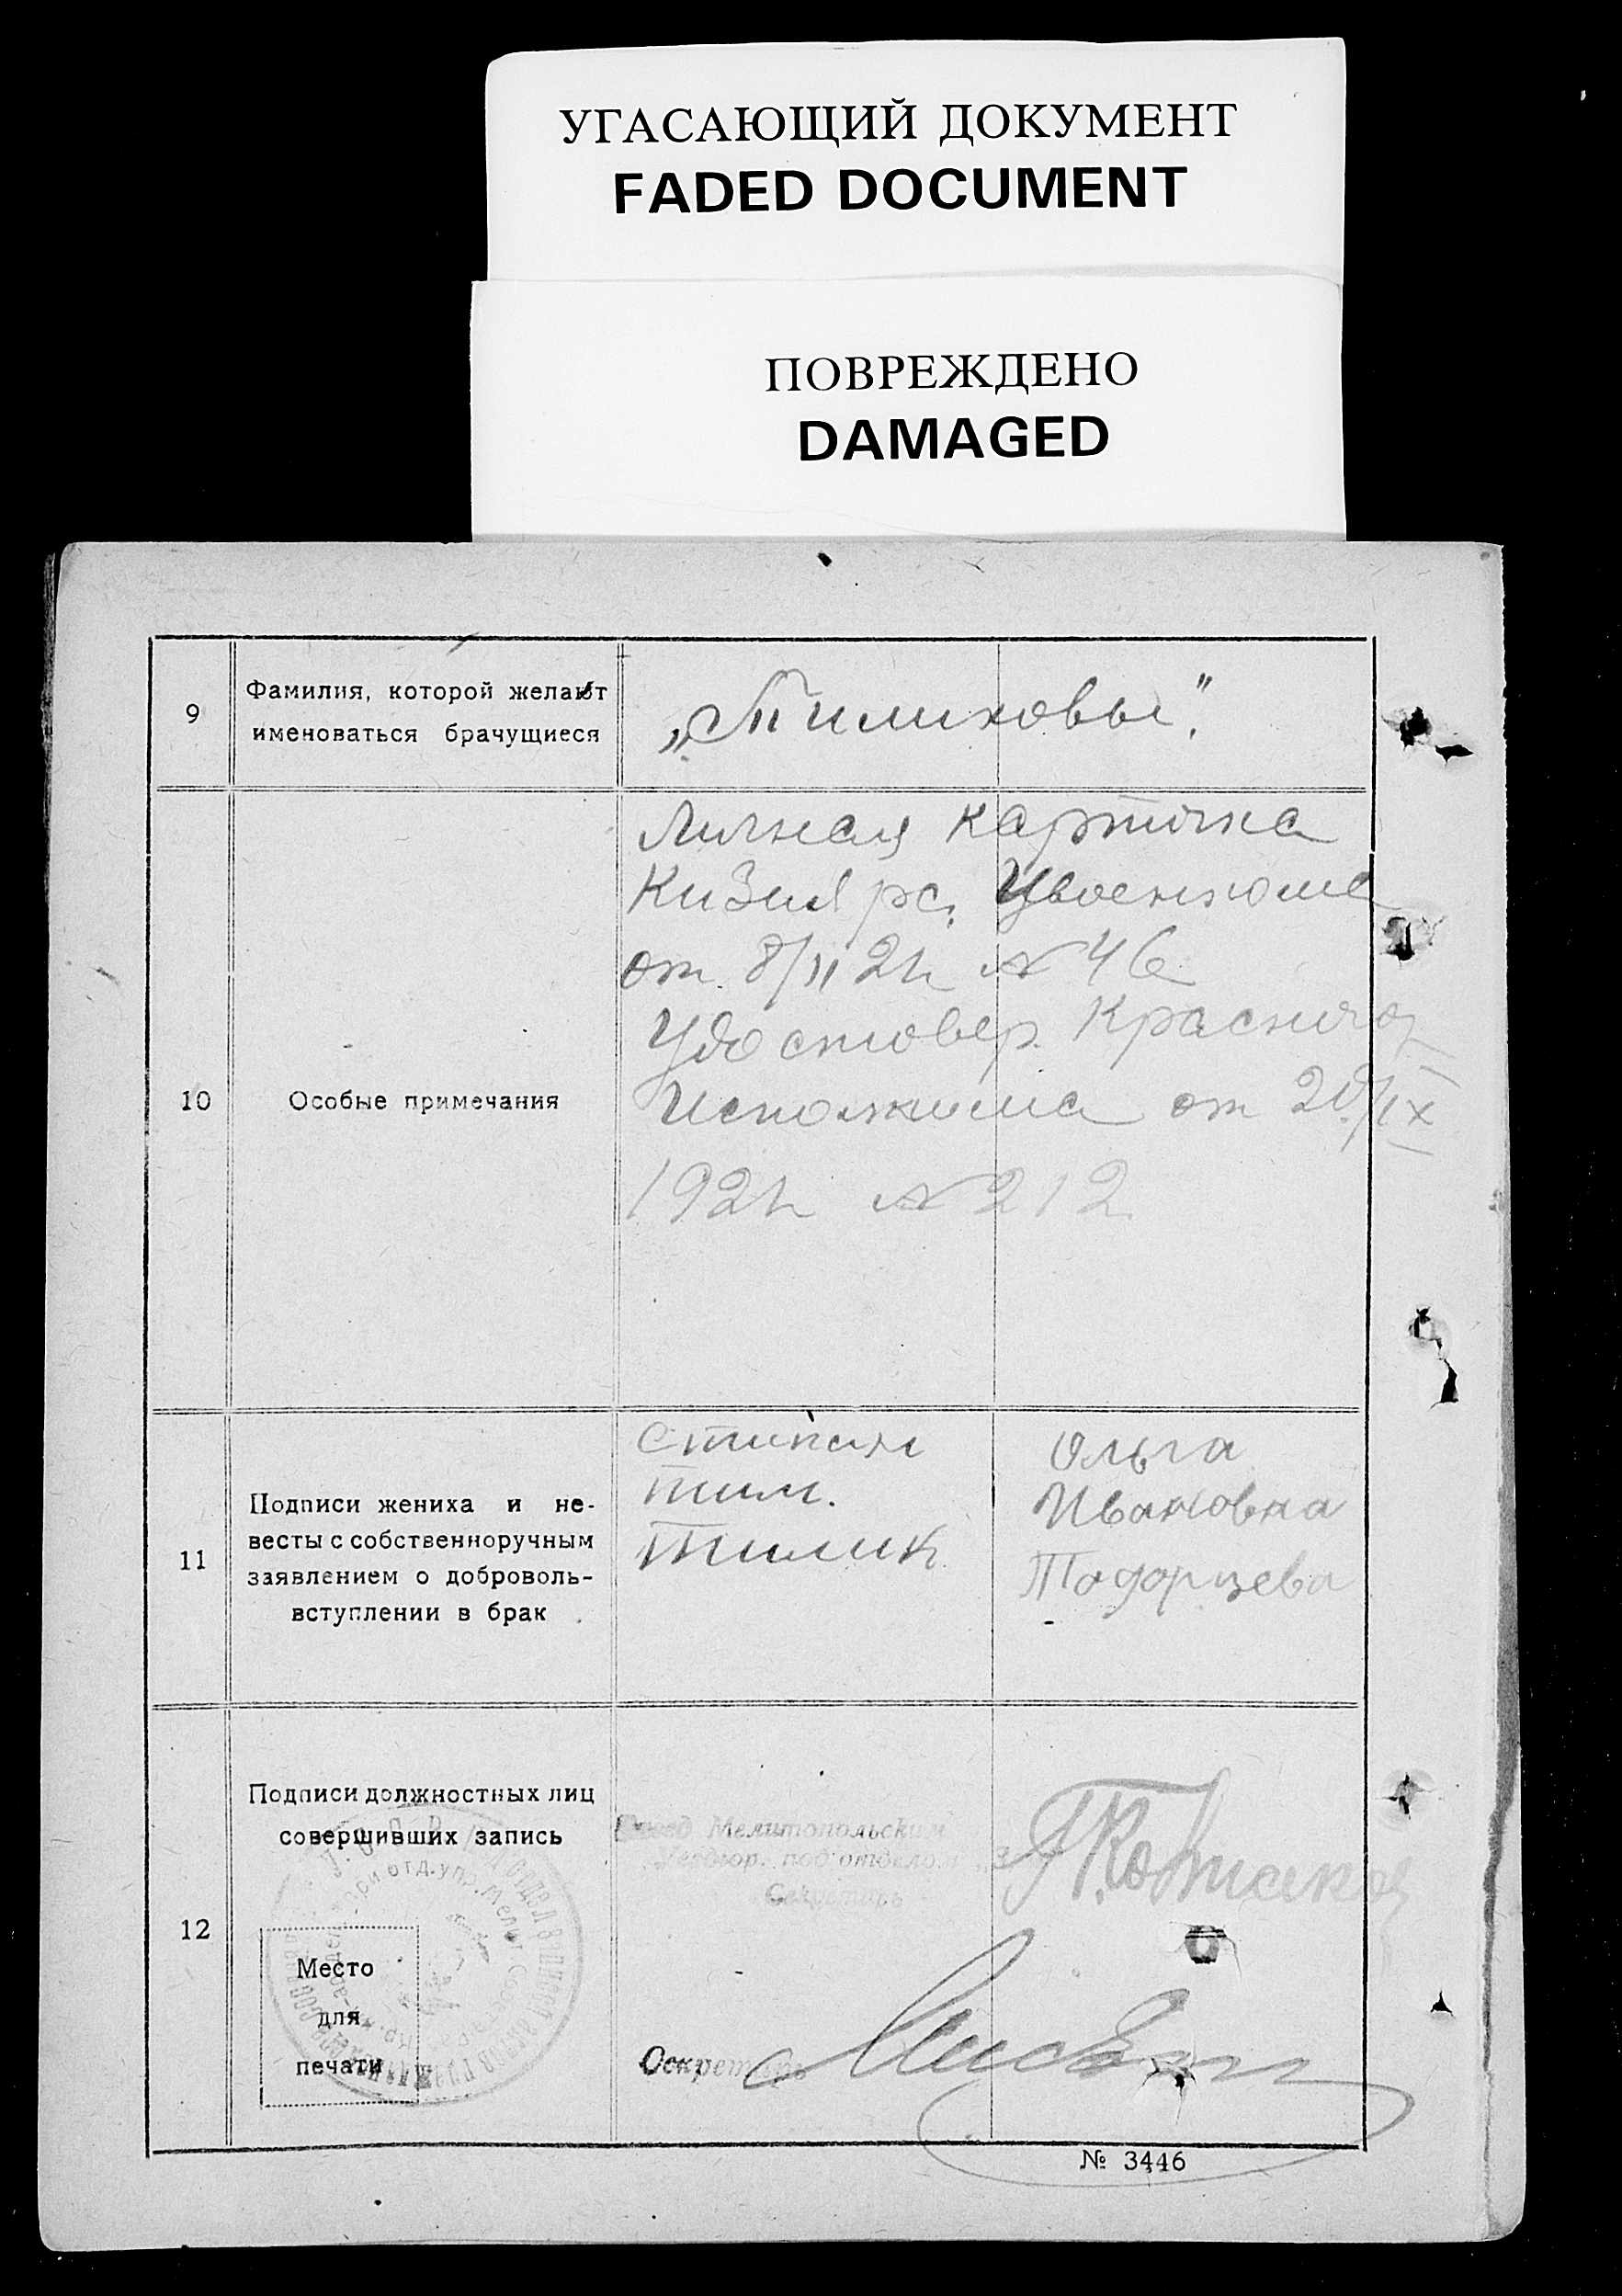 УГАСАЮЩИЙ ДОКУМЕНТ
FADED DOCUMENT
ПОВРЕЖДЕНО
DAMAGED
9
Фамилия, которой желают
именоваться брачущиеся
„Тилиховы".
10
Особые примечания
Личная карточка
от 8/II 21г № 46
Удостовер.
Исполкома от 20/IX
1921г № 212
11
Подписи жениха и не-
весты с собственноручным
заявлением о доброволь-
вступлении в брак
Стипан
тим.
Тилик
Ольга
Ивановна
Тодорцева
12
Подписи должностных лиц
совершивших запись
Место
для
печати
Мелитопольским
под'отделом
Секретарь
Секретарь
№ 3446